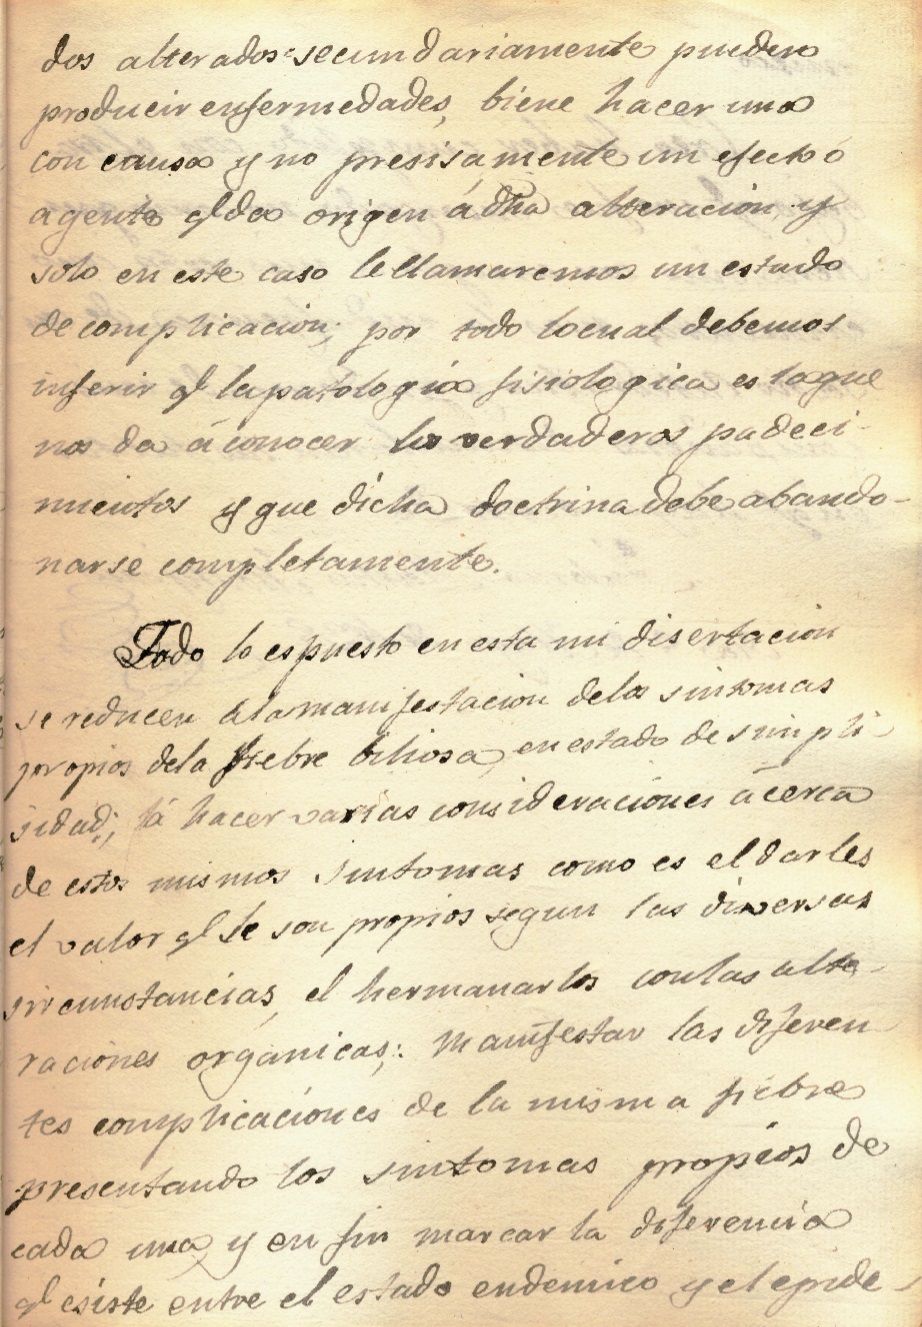 dos alterados secundariamente pueden
producir enfermedades, biene hacer una
con causa y no presisamente un efecto ó
agente q.e da origen á dha alteración, y
solo en este caso le llamaremos un estado
de complicacion; por todo lo cual debemos
inferir q.e la patologia fisiologica es la que
nos da á conocer los verdaderos padeci-
mientos y que dicha doctrina debe abando-
narse completamente.
Todo lo espuesto en esta mi disertacion
se reducen á la manifestacion de los sintomas
propios de la fiebre biliosa, en estado de simpli-
sidad; á hacer varias consideraciones ácerca
de estos mismos sintomas como es el darles
el valor q.e le son propios segun las diversas
sircunstancias, el hermanarlos con las alte-
raciones orgánicas; manifestar las diferen-
tes complicaciones de la misma fiebre
presentando los sintomas propios de
cada una, y en fin marcar la diferencia
q.e esiste entre el estado endemico y el epide-